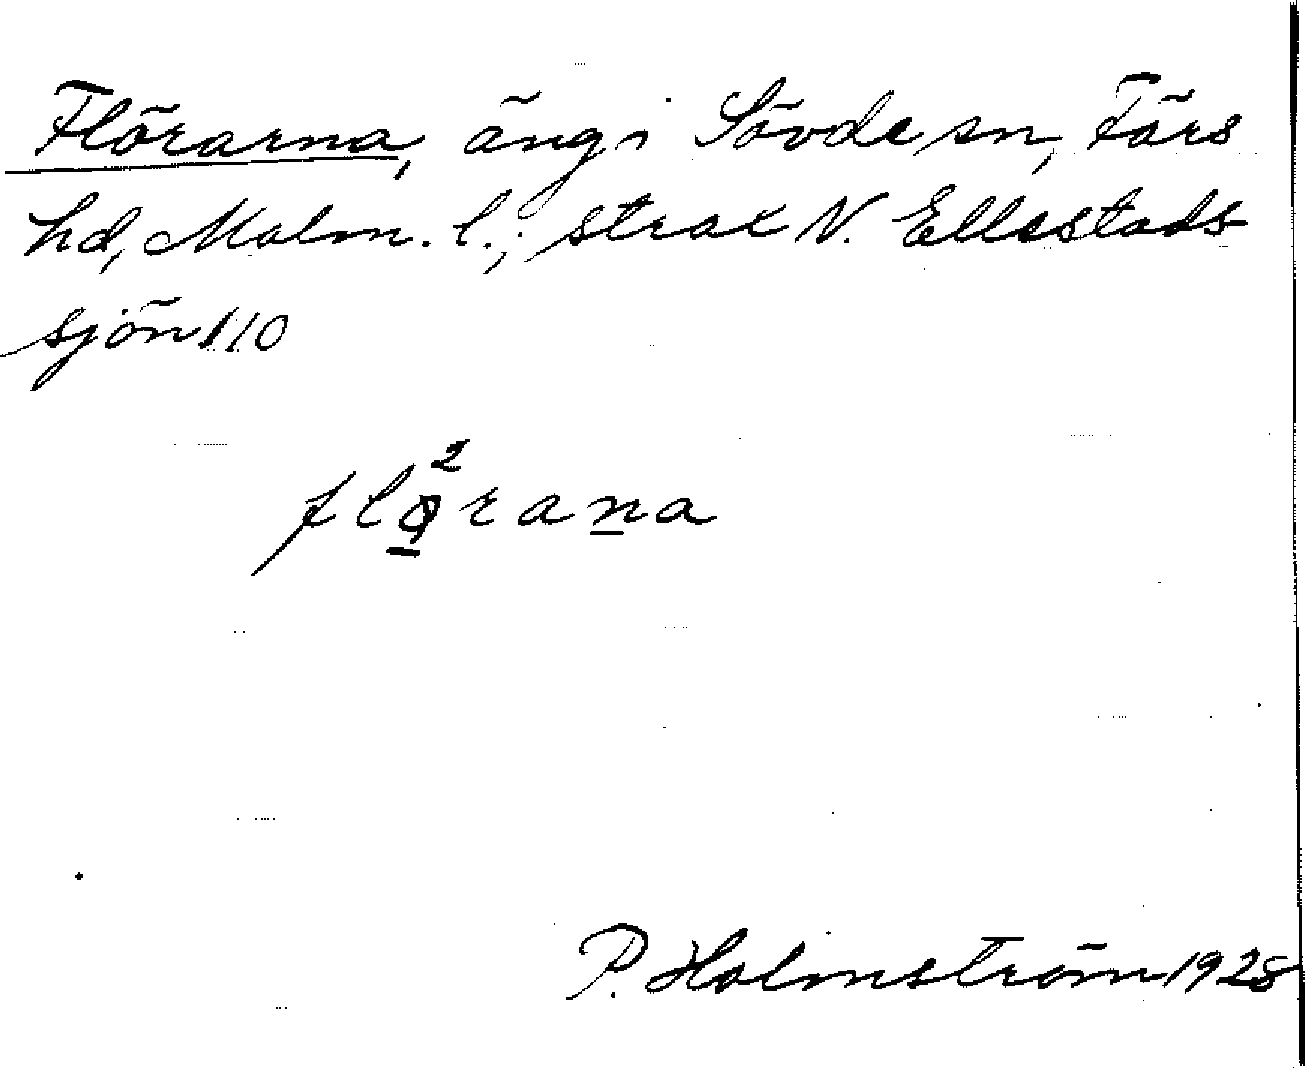 Flörarna, äng i Sövde sn, Färs
hd, Malm. l.; strax N. Ellestads-
sjön 110
flǫ̲²rana̲
P. Holmström 1928